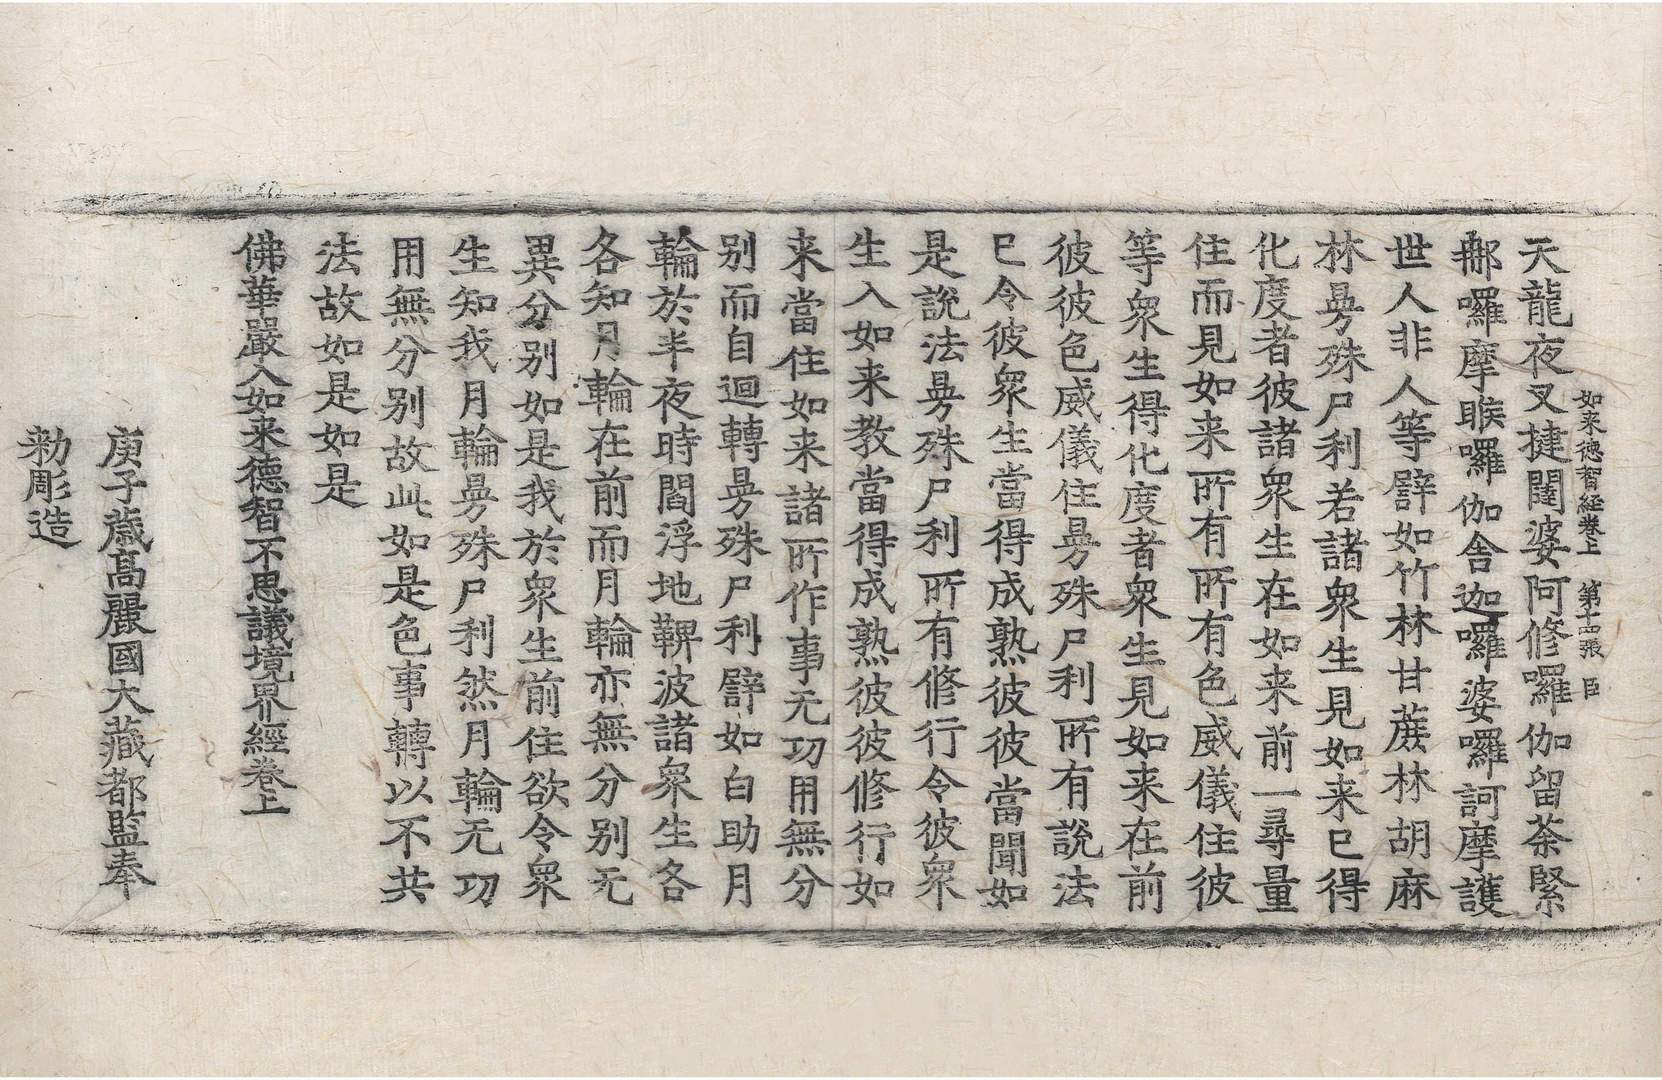 如来德智經卷上 第十四張 臣
天龍夜叉揵闥婆阿修囉伽留荼緊
那囉摩睺囉伽舍迦囉婆囉訶摩護
世人非人等譬如竹林甘蔗林胡麻
林曼殊尸利若諸衆生見如来已得
化度者彼諸衆生在如来前一尋量
住而見如来所有所有色威儀住彼
等衆生得化度者衆生見如来在前
彼彼色威儀住曼殊尸利所有說法
已令彼衆生當得成熟彼彼當聞如
是說法曼殊尸利所有修行令彼衆
生入如来教當得成熟彼彼修行如
来當住如来諸所作事无功用無分
别而自迴轉曼殊尸利譬如白助月
輪於半夜時閻浮地鞞波諸衆生各
各知月輪在前而月輪亦無分别无
異分别如是我於衆生前住欲令衆
生知我月輪曼殊尸利然月輪无功
用無分别故此如是色事轉以不共
法故如是如是
佛華嚴入如来德智不思議境界經卷上
庚子歲高麗國大藏都監奉
勑彫造